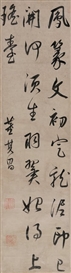 鳳篆文初定龍泥印已
開何須生羽翼始得上
瑤臺 董其昌